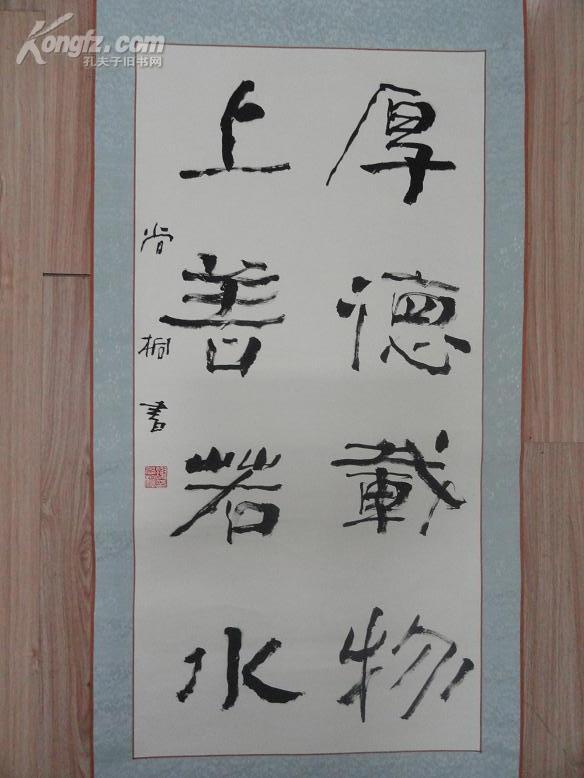 厚德載物
上善若水
尚桐書
Kongfz.com
孔夫子旧书网